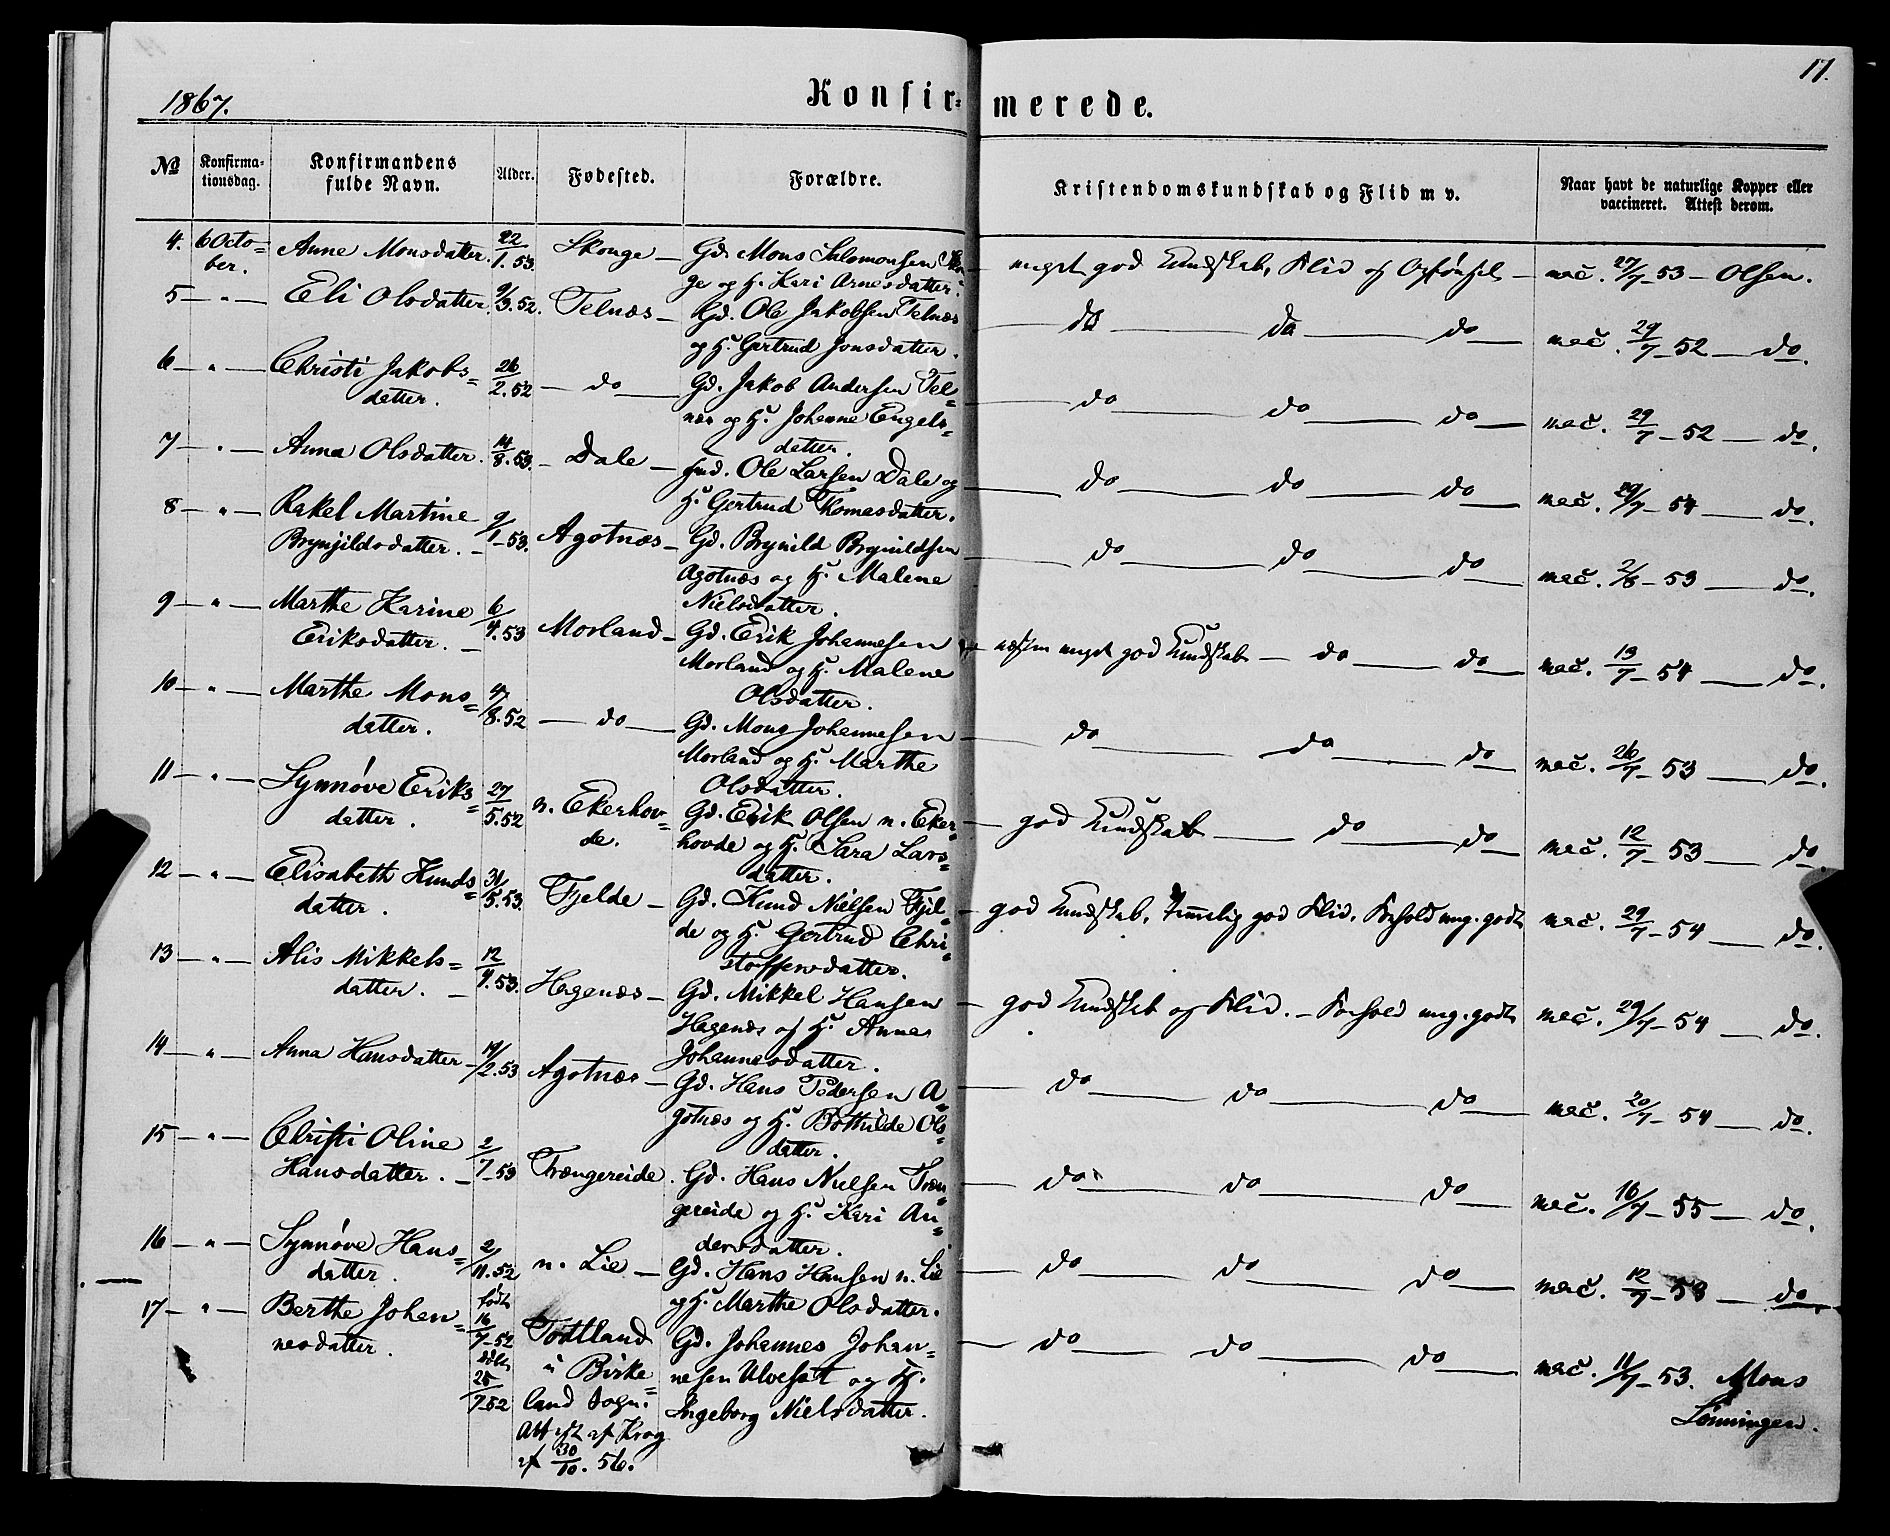 17.
1867. Konfir= merede.
№ Konfirma- tionsdag. Konfirmandens fulde Navn. Alder. Fødested. Forældre. Kristendomskundskab og Flid m v. Naar havt de naturlige Kopper eller vaccineret. Attest derom.
4. 6 Octo= Anne Monsdatter. 22/1. 53. Skouge — Gd. Mons Salomonsen — meget god Kundskab, Flid og Opførsel — vac. 27/7 53 — Olsen.
ber. ge og H. Kari Arnesdatter.
5 — " — Eli Olsdatter. 9/3. 52. Telnæs — Gd. Ole Jakobsen Telnæs — do — do — do — vac. 29/7 — 52 — do.
og H. Gertrud Jonsdatter.
6 — " — Christi Jakobs= 26/2. 52 — do — Gd. Jakob Andersen Tel= — do — do — do — vac. 29/7 — 52 — do.
datter. næs og H. Johanne Engels=
datter.
7 — " — Anna Olsdatter. 14/8. 53. — Dale — Ole Larsen Dale og — do — do — do — vac. 29/7 — 54 — do.
H. Gertrud Thomasdatter.
8 — " — Rakel Martine 9/1 — 53. Agotnæs — Gd. Brynild Brynildsen — do — do — do — vac. 2/8 — 53 — do.
Brynjildsdatter. — Agotnæs og H. Malene
Nielsdatter.
9 — " — Marthe Karine 6/4. 53 Morland — Gd. Erik Johannesen næsten meget god Kundskab — do — do — vac. 13/7 — 54 — do.
Eriksdatter. — Morland og H. Malene
Olsdatter.
10 — " — Marthe Mons= 4/8. 52 — do — Gd. Mons Johannesen — do — do — do — vac. 26/7 — 53 — do.
datter. Morland og H. Marthe
Olsdatter.
11 — " — Synnøve Eriks= 27/5. 52 n. Ekerhov= Gd. Erik Olsen n. Eker= — god Kundskab — do — do — vac. 12/7 — 53 — do.
datter. de. hovde og H. Sara Lars=
datter.
12 — " — Elisabeth Knuds= 31/5. 53. Fjelde — Gd. Knud Nielsen Fjel= — god Kundskab, temmelig god Flid, Forhold meg. godt vac. 29/7 — 54 — do.
datter. de og H. Gertrud Chri=
stoffersdatter.
13 — " — Alis Mikkels= 12/4. 53. Hagenæs — Gd. Mikkel Hansen — god Kundskab og Flid. — Forhold meg. godt vac. 29/7 — 54 — do.
datter. — Hagenæs og H. Anna
Johannesdatter.
14 — " — Anna Hansdatter — 19/2. 53 Agotnæs — Gd. Hans Pedersen A= — do — do — do — vac. 20/7 — 54 — do.
gotnæs og H. Bothilde Ols=
datter.
15 — " — Christi Oline 2/7 — 53 Trængereide. Gd. Hans Nielsen Træn= — do — do — do — vac. 16/7 — 55 — do.
Hansdatter. — gereide og H. Kari An=
dersdatter.
16 — " — Synnøve Hans= 2/11. 52 n. Lie — Gd. Hans Hansen n. Lie — do — do — do — vac. 12/7 — 53 — do.
datter. og H. Marthe Olsdatter.
17 — " — Berthe Johan= født 16/7 — 52 Tøtland Gd. Johannes Johan= — do — do — do — vac. 11/7 — 53. Mons
nesdatter. døbt 25/7 52 i Birke= nesen Ulveset og H. Lønningen.
land Sogn. Ingeborg Nielsdatter.
Attest af Krog
af 30/10. 56.